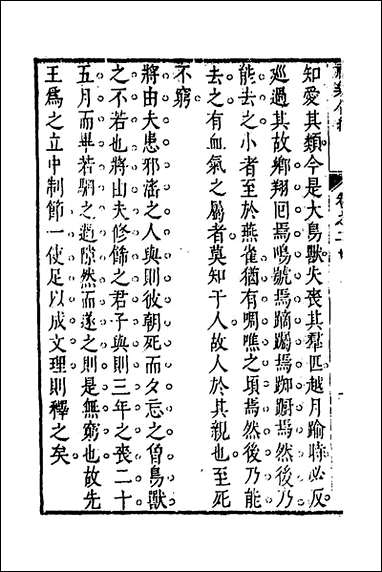 知愛其類今是大鳥獸失喪其羣匹越月踰時必反
巡過其故鄉翔回焉鳴號焉蹢躅焉踟躕焉然後乃
能去之小者至於燕雀猶有啁噍之頃焉然後乃能
去之有血氣之屬者莫知于人故人於其親也至死
不窮
將由夫患邪淫之人與則彼朝死而夕忘之曾鳥獸
之不若也將由夫修飾之君子與則三年之喪二十
五月而畢若駟之過隙然而遂之則是無窮也故先
王爲之立中制節一使足以成文理則釋之矣